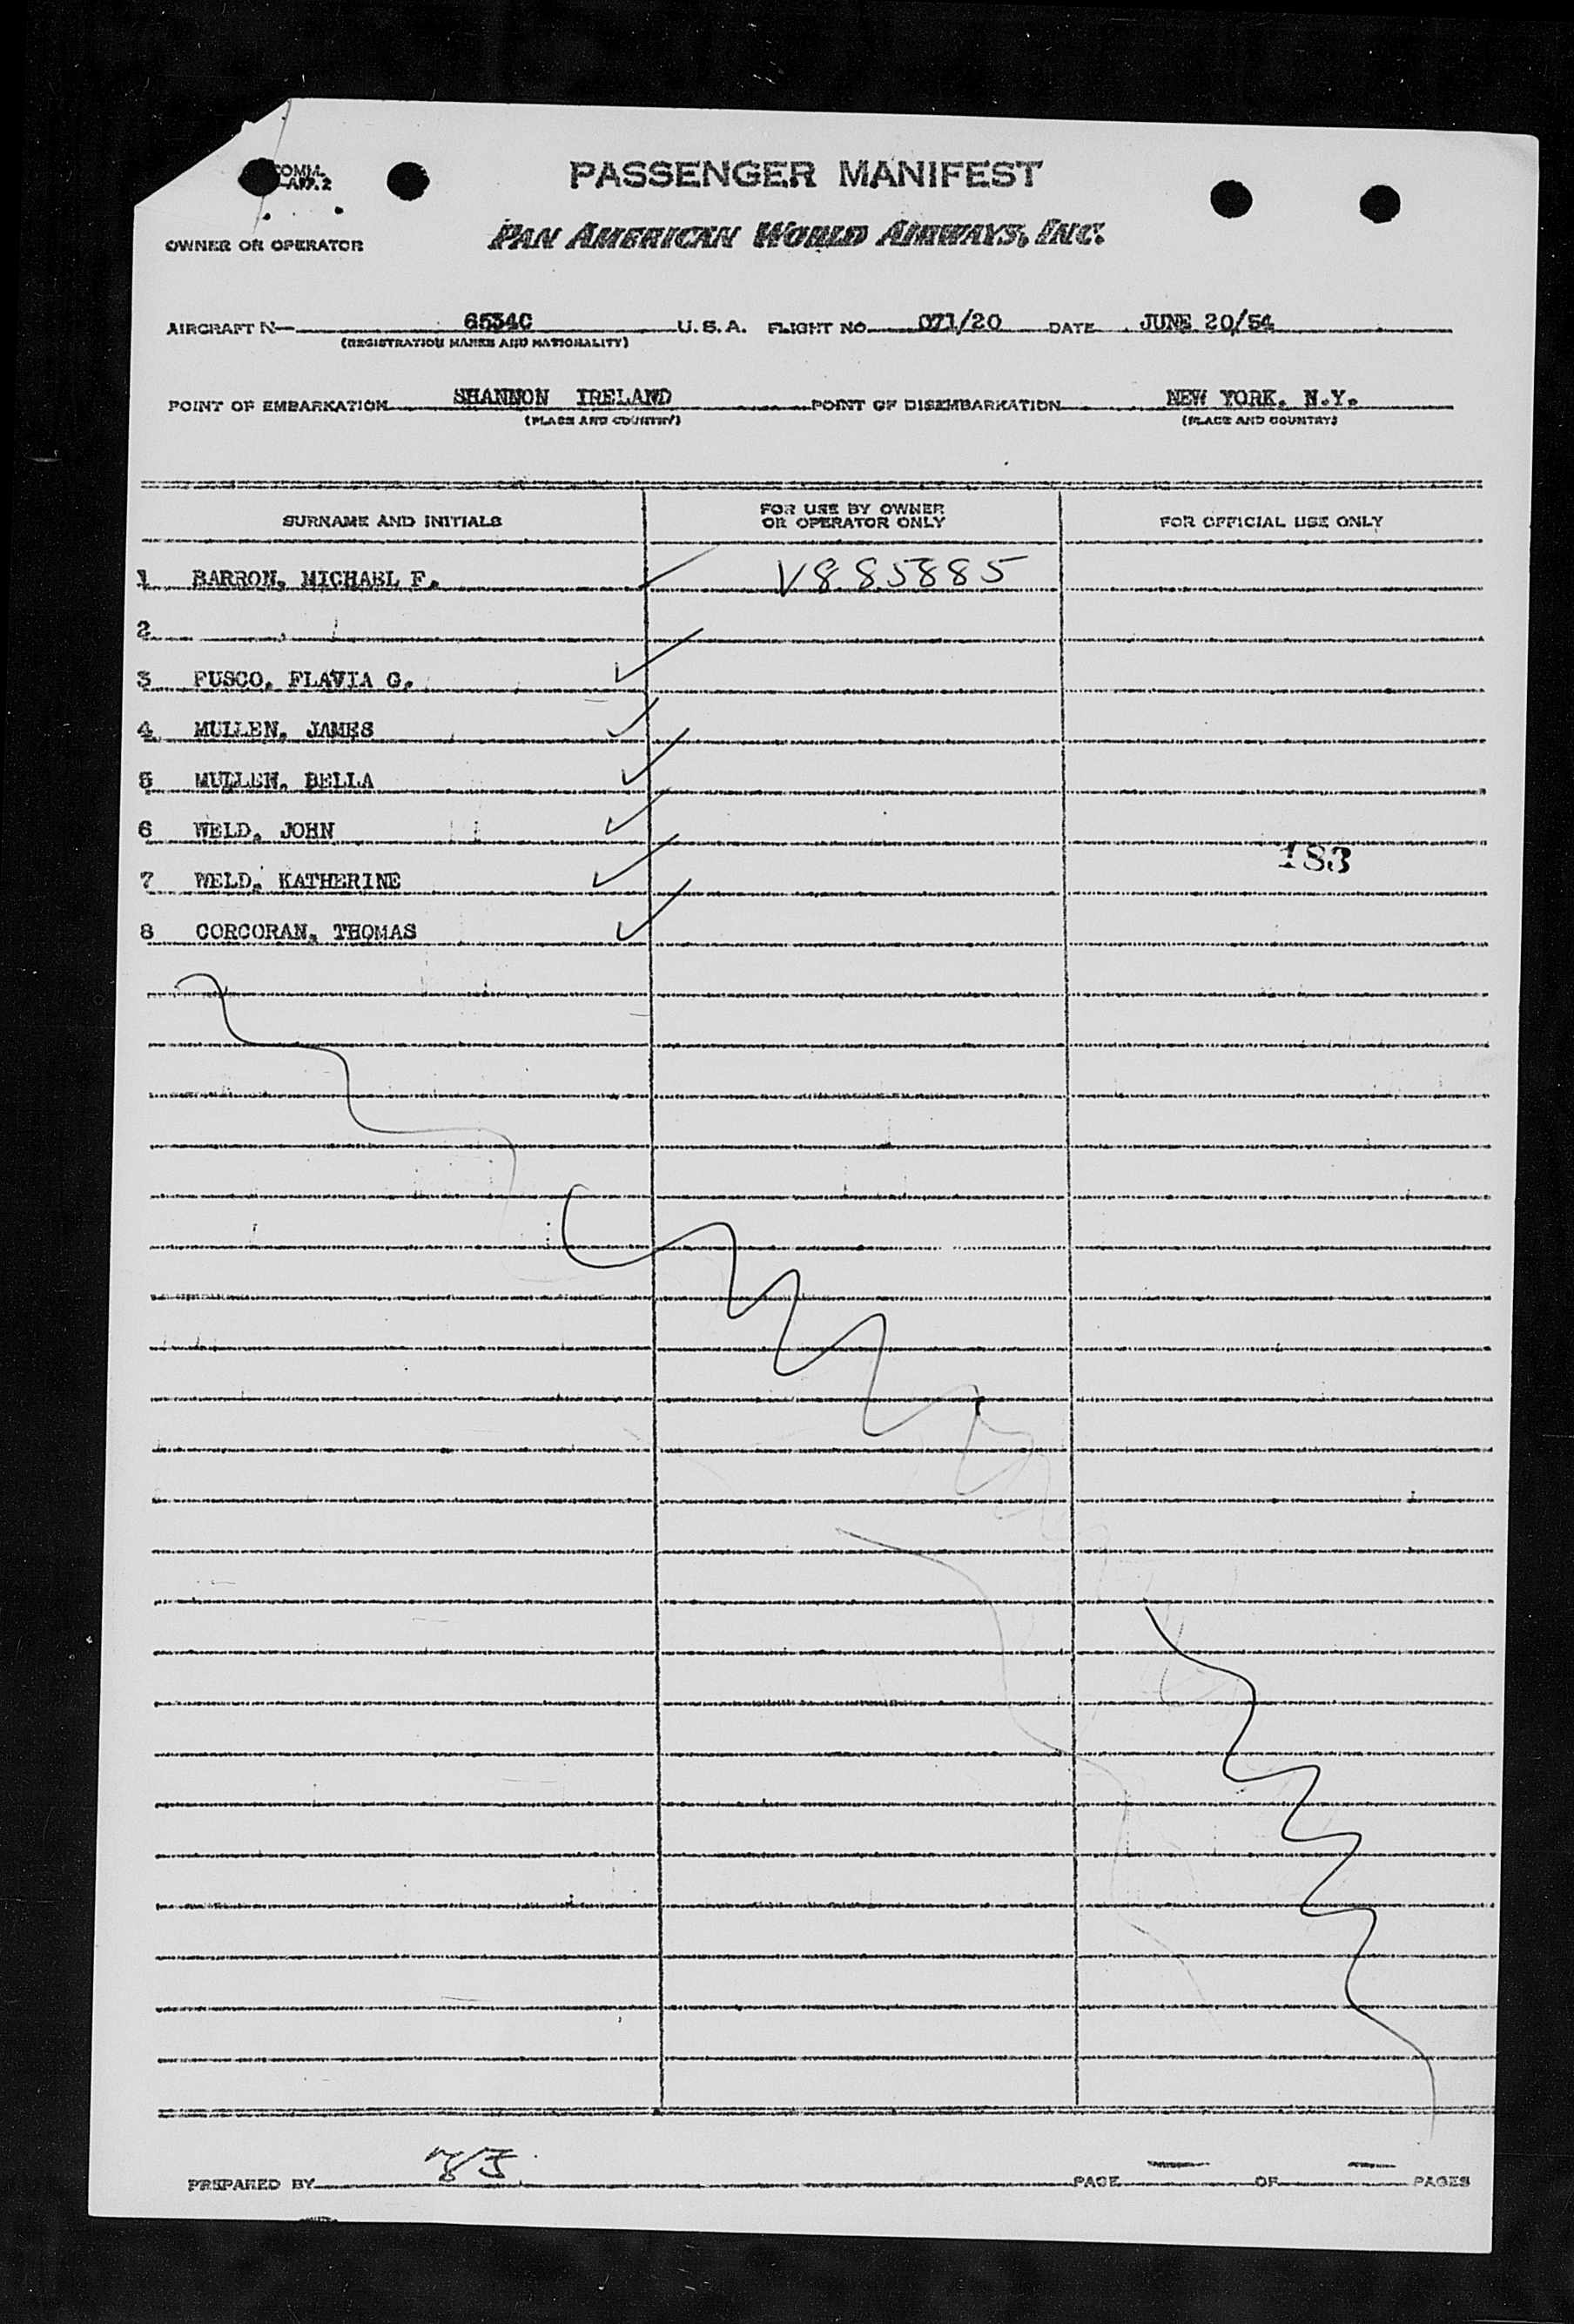 COMM.
PASSENGER MANIFEST
OWNER OR OPERATOR PAN AMERICAN WORLD AIRWAYS, INC.
AIRCRAFT N— 6534C U. S. A. FLIGHT NO. 071/20 DATE JUNE 20/54
(REGISTRATION MARKS AND NATIONALITY)
POINT OF EMBARKATION SHANNON IRELAND POINT OF DISEMBARKATION NEW YORK, N.Y.
(PLACE AND COUNTRY) (PLACE AND COUNTRY)
SURNAME AND INITIALS FOR USE BY OWNER OR OPERATOR ONLY FOR OFFICIAL USE ONLY
1 BARRON, MICHAEL F. V885885
2
3 FUSCO, FLAVIA G.
4 MULLEN, JAMES
5 MULLEN, BELLA
6 WELD, JOHN
183
7 WELD, KATHERINE
8 CORCORAN, THOMAS
PREPARED BY PAGE — OF — PAGES